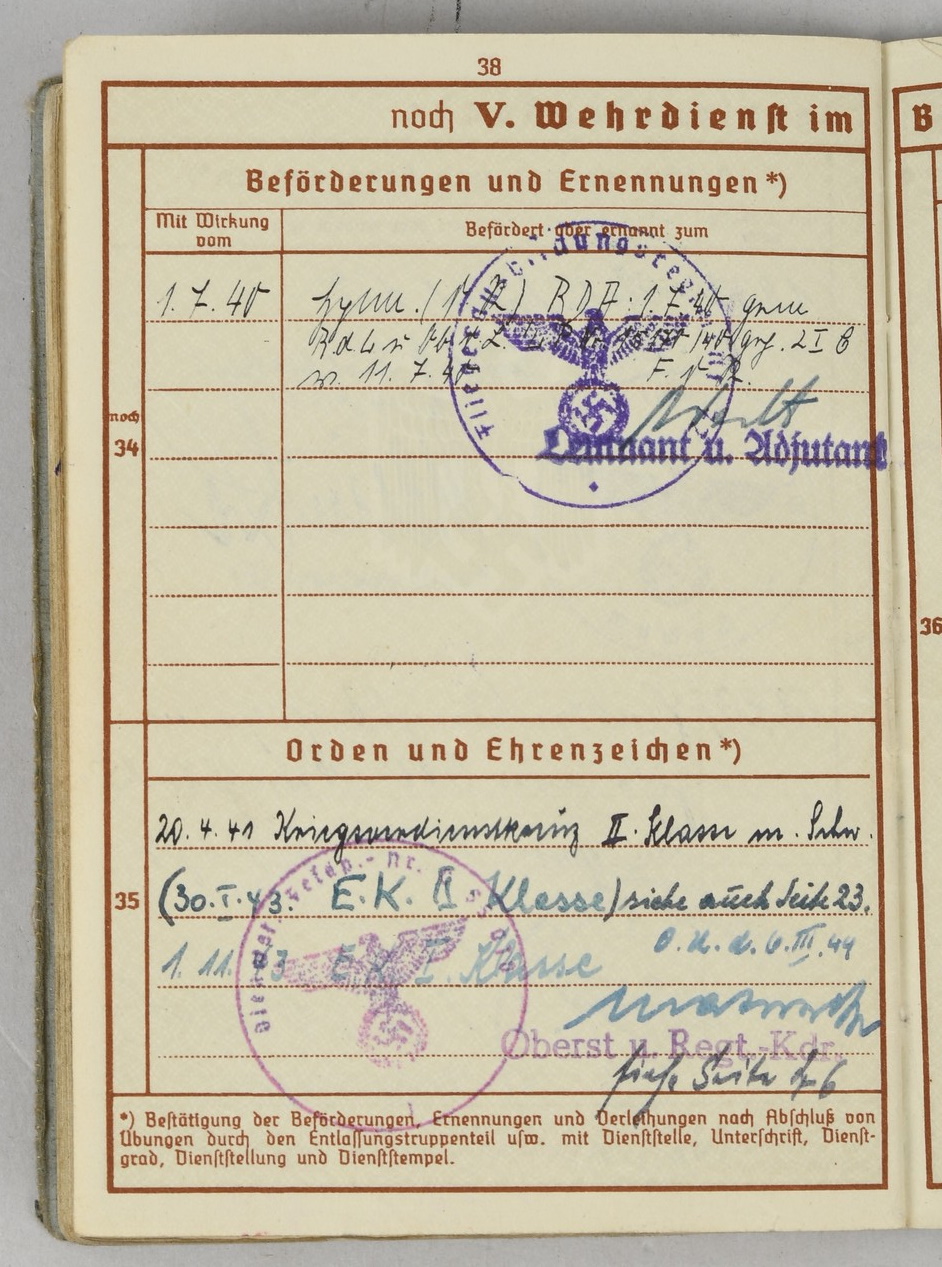 38
noch V. Wehrdienst im
B
Beförderungen und Ernennungen *)
Mit Wirkung vom
Befördert oder ernannt zum
1.7.40 Hptm. RDA. 1.7.40 gem.
R d L u Ob d L
v. 11.7.40
Fliegerausbildungsregiment
noch
34
Leutnant u. Adjutant
36
Orden und Ehrenzeichen *)
20.4.41 Kriegsverdienstkreuz II. Klasse m. Schw.
35
(30.I.43. E.K. II Klasse) siehe auch Seite 23.
1.11.43 E.K. I. Klasse
O.U.d. 6.III.44
Oberst u. Regt.-Kdr.
siehe Seite
*) Bestätigung der Beförderungen, Ernennungen und Verleihungen nach Abschluß von
Übungen durch den Entlassungstruppenteil usw. mit Dienststelle, Unterschrift, Dienst-
grad, Dienststellung und Dienststempel.